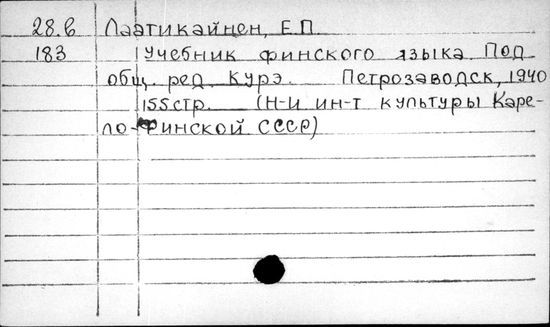 28.б Лаатикайнен, Е.П.
183 Учебник финского языка. Под
общ. ред. Курэ. Петрозаводск, 1940
155 стр. (Н-и ин-т культуры Каре-
ло-Финской СССР)